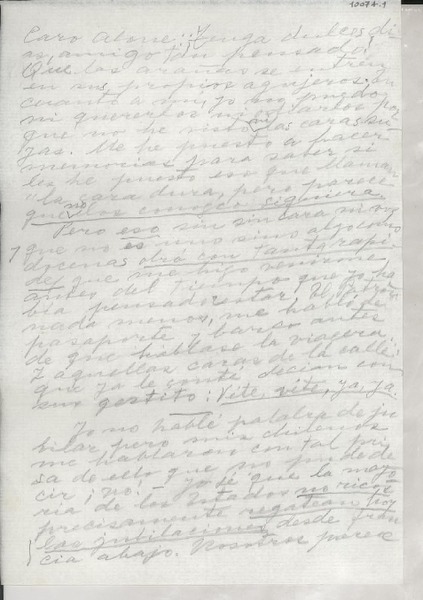 10074-1
Caro Alone: ¡Y tenga dulces dí
as, amigo tan pensado!
Que las arañas se entren
en sus propios agujeros; en
cuanto a mí, yo no puedo
ni quererlos ni odiarlos por
que no he visto las caras su
yas. Me he puesto a hacer
memorias para saber si
les he puesto eso que llaman
"la cara dura, pero parece
que no los conozco siquiera.
Pero eso, sin sin cara ni voz
y que no es uno sino algo como
docenas obró con tanta rapi
dez que me hizo venirme
antes del tiempo que yo ha
bía pensado estar. El Patrón
nada menos, me habló de
pasaporte y barco antes
de que hablase la viajera.
Y aquellas caras de la calle,
que ya le conté, decían con
sus gestito: Vite, vite, ya, ya.
Yo no hablé palabra de ju
bilar, pero mis chilenos
me hablaron con tal pri
sa de ello que no pude de
cir ¡no! Yo sé que la mayo
ría de los Estados no rico
precisamente regatean hoy
las jubilaciones desde Fran
cia abajo. Nosotros parece